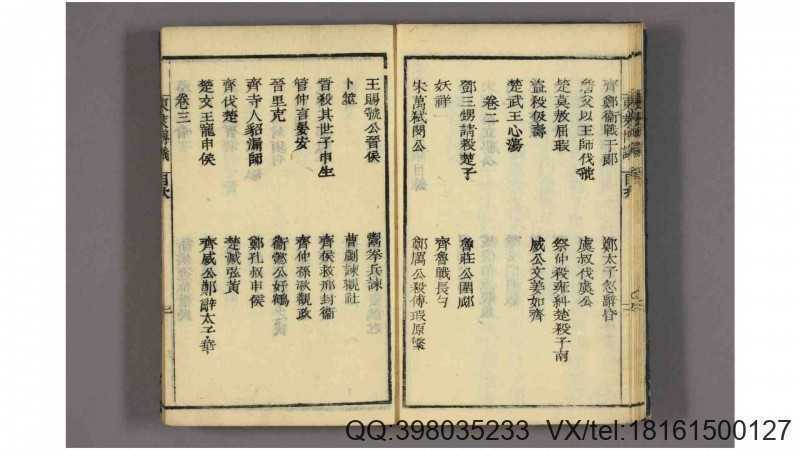 齊鄭衛戰于郎　鄭太子忽辭昏
詹父以王師伐虢　虞叔伐虞公
楚莫敖屈瑕　祭仲殺雍糾楚殺子南
盜殺伋壽　威公文姜如齊
楚武王心蕩
卷二
鄧三甥請殺楚子　魯莊公圍郕
妖祥　齊魯戰長勺
宋萬弒閔公　鄭厲公殺傅瑕原繁
王賜虢公晉侯　鬻拳兵諫
卜筮　曹劌諫觀社
晉殺其世子申生　齊侯救邢封衛
管仲言宴安　齊仲孫湫觀政
晉里克　衛懿公好鶴
齊寺人貂漏師　鄭孔叔申侯
齊伐楚　楚滅弦黃
楚文王寵申侯　齊威公鄭辭太子華
卷三
QQ:398035233 VX/tel:18161500127